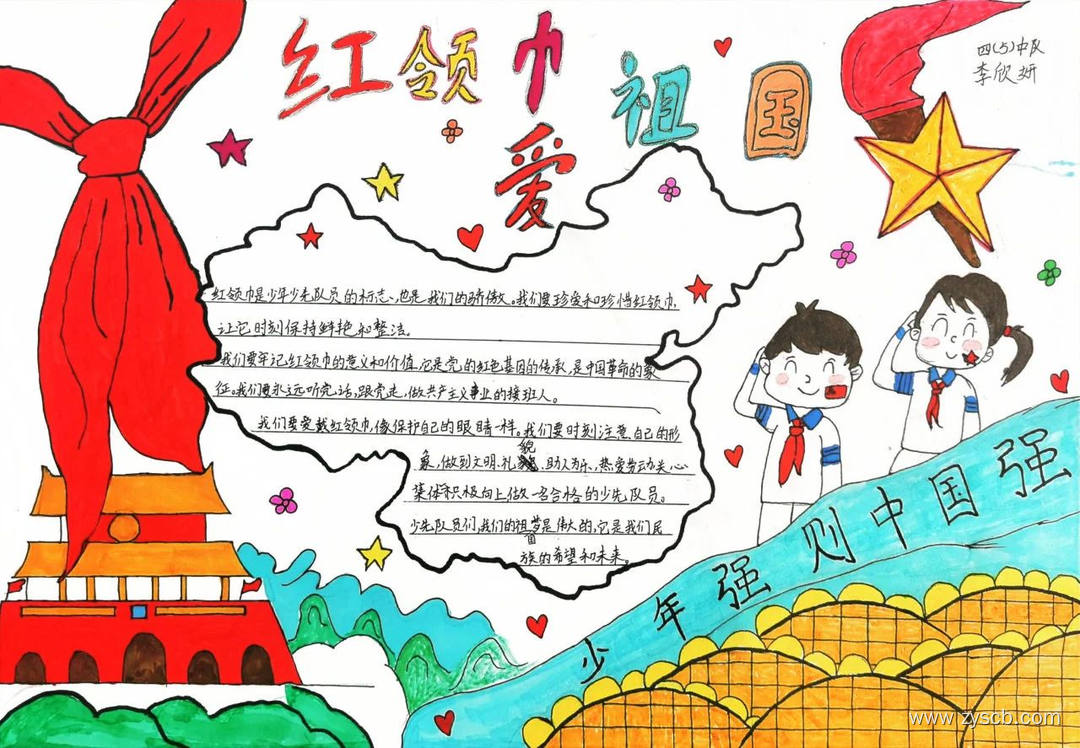 红领巾爱祖国
四(5)中队
李欣妍
红领巾是少年少先队员的标志、也是我们的骄傲。我们要珍爱和珍惜红领巾,
让它时刻保持鲜艳和整洁。
我们要牢记红领巾的意义和价值,它是党的红色基因的传承,是中国革命的象
征。我们要永远听党话,跟党走,做共产主义事业的接班人。
我们要爱戴红领巾,像保护自己的眼睛一样。我们要时刻注意自己的形
象,做到文明、礼貌,助人为乐,热爱劳动关心
集体积极向上做一名合格的少先队员。
少先队员们,我们的祖国是伟大的,它是我们民
族的希望和未来。
少年强则中国强
www.zyscb.com